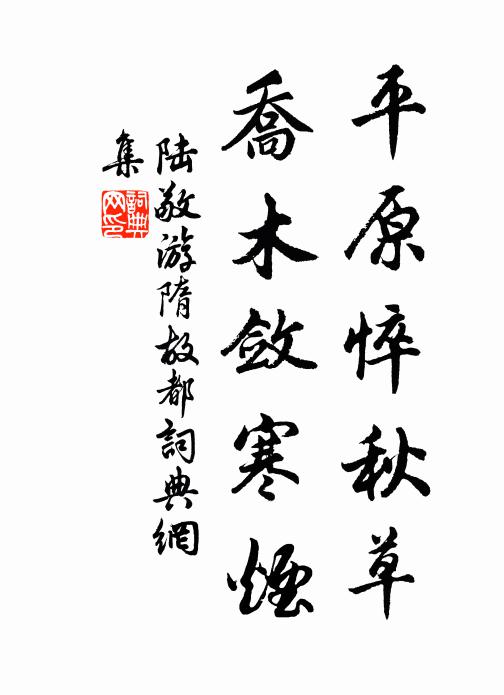 平原悴秋草
喬木斂寒煙
陆敬游隋故都詞典網
集
詞典
网印